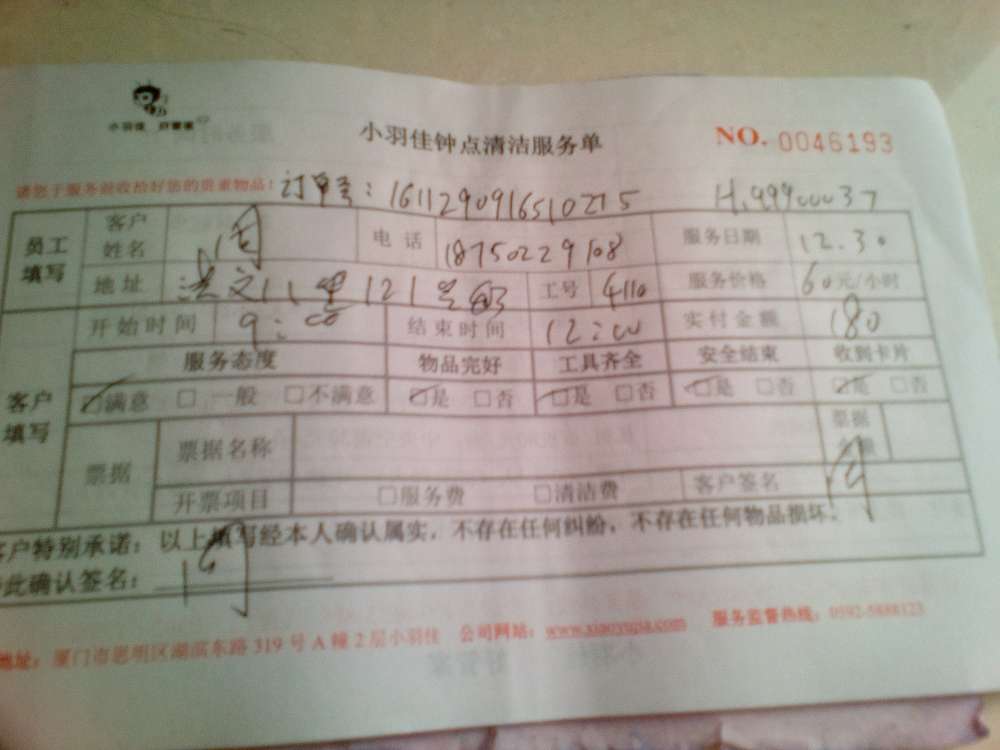 小羽佳 好管家
小羽佳钟点清洁服务单
NO. 0046193
请您于服务前收拾好您的贵重物品！ 订单号：1611290916510215 H.99900037
员工填写 客户姓名 周 电话 18750229108 服务日期 12.30
地址 洪文八里121号 工号 4110 服务价格 60元/小时
客户填写 开始时间 9:00 结束时间 12:00 实付金额 180
服务态度 物品完好 工具齐全 安全结束 收到卡片
☑满意 □一般 □不满意 ☑是 □否 ☑是 □否 ☑是 □否 ☑是 □否
票据 票据名称 票据金额
开票项目 □服务费 □清洁费 客户签名 周
客户特别承诺：以上填写经本人确认属实，不存在任何纠纷，不存在任何物品损坏．
特此确认签名： 周
地址：厦门市思明区湖滨东路 319 号 A 幢 2 层小羽佳 公司网站：www.xiaoyujia.com 服务监督热线：0592-5888123